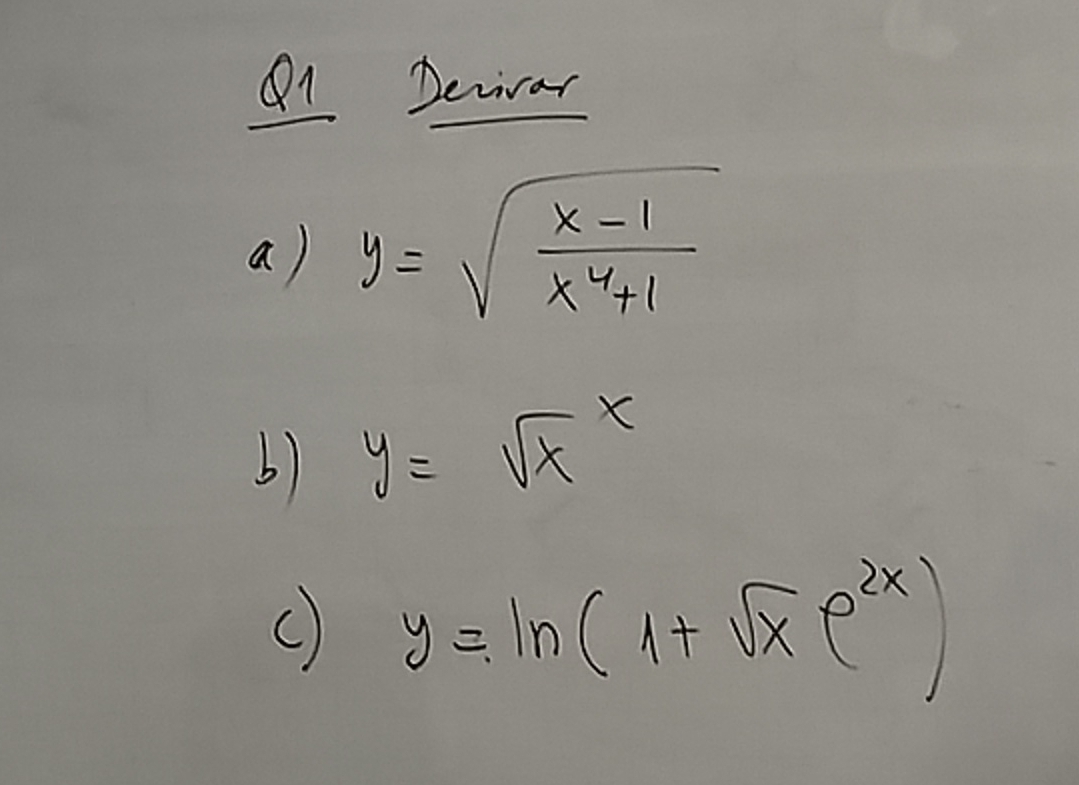 Q1 Derivar
a) y = √((x-1)/(x⁴+1))
b) y = √x ˣ
c) y = ln( 1 + √x e²ˣ )